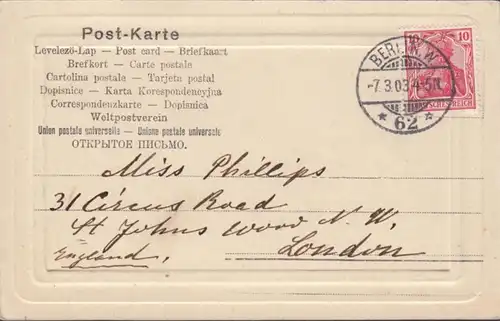 Post-Karte
Levelező-Lap — Post card — Briefkaart
Brefkort — Carte postale
Cartolina postale — Tarjeta postal
Dopisnice — Karta Korespondencyjna
Correspondenzkarte — Dopisnica
Weltpostverein
Union postale universelle — Unione postale universale
ОТКРЫТОЕ ПИСЬМО.
10
BERLIN. W
-7.3.03.4-5N.
* 62 *
Miss Phillips
31 Circus Road
St Johns wood N. W.
London
England,